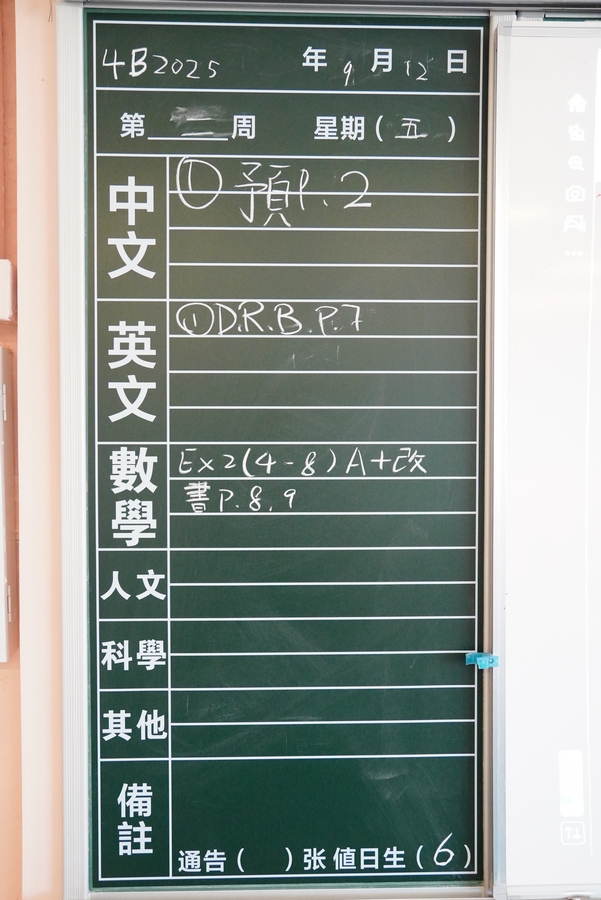 4B 2025 年 9 月 12 日
第 周 星期(五)
中文
① 預P.2
英文
① D.R.B. P.7
數學
Ex2(4-8)A+改
書P.8,9
人文
科學
其他
備註
通告( )张 值日生(6)